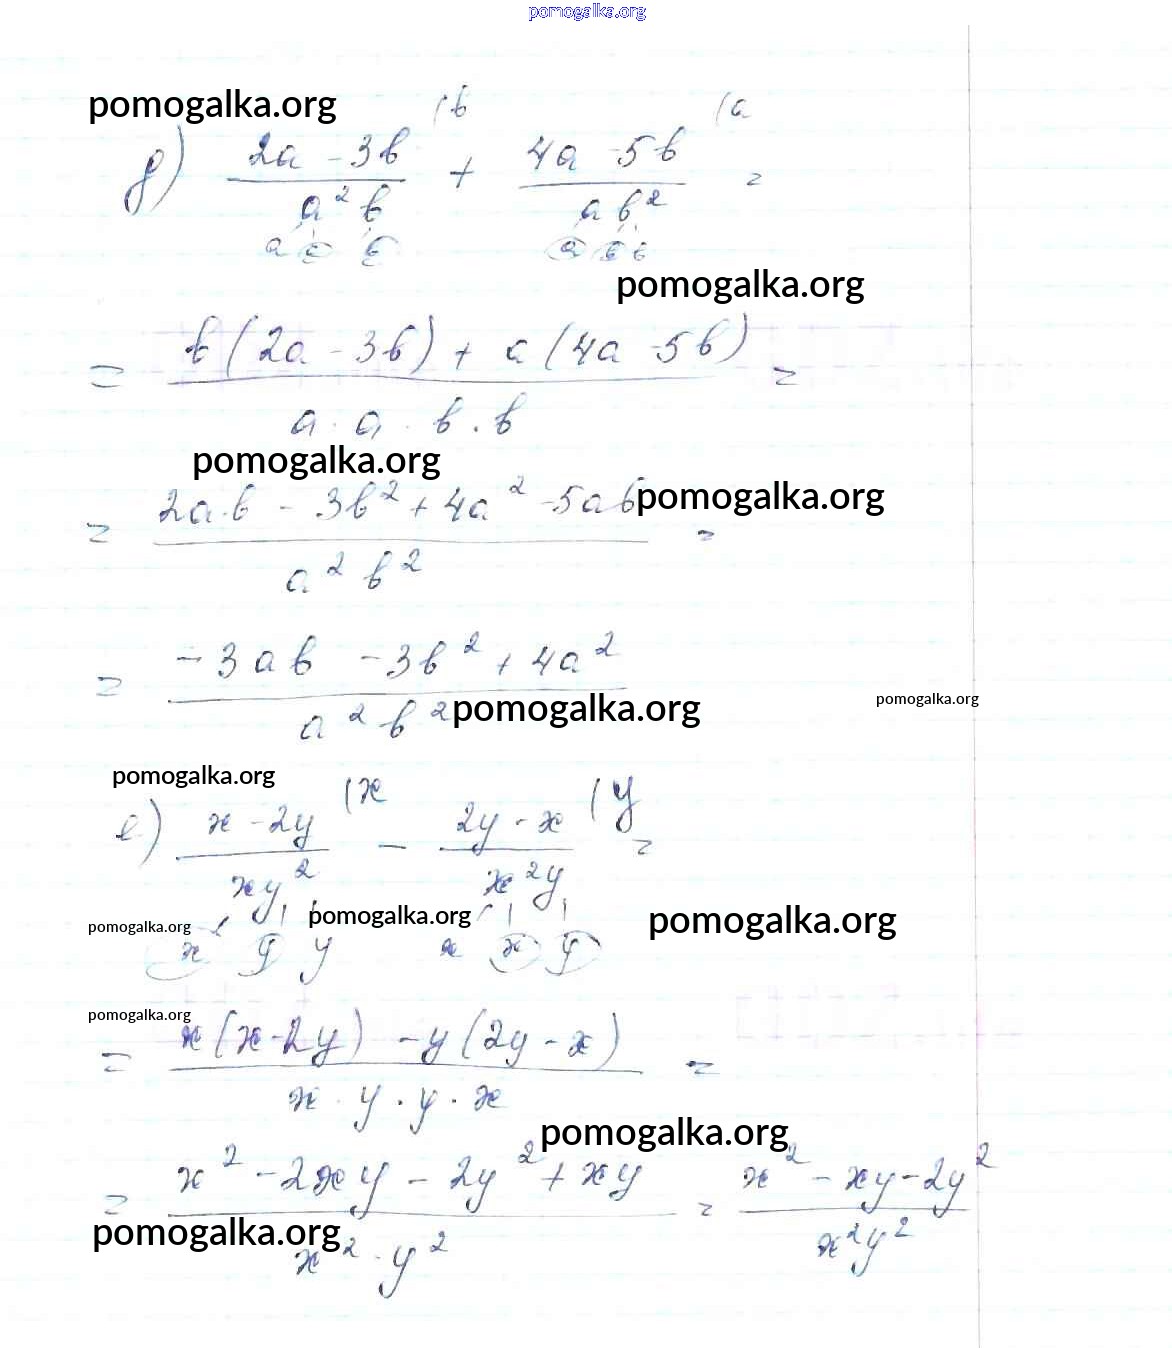 pomogalka.org
pomogalka.org
д) (2a - 3b)/(a²b) (b + (4a - 5b)/(ab²) (a =
a a b   a b b
pomogalka.org
= (b(2a - 3b) + a(4a - 5b))/(a · a · b · b) =
pomogalka.org
pomogalka.org
= (2a·b - 3b² + 4a² - 5ab)/(a² b²) =
= (-3ab - 3b² + 4a²)/(a² b²)
pomogalka.org
pomogalka.org
pomogalka.org
е) (x - 2y)/(xy²) (x - (2y - x)/(x²y) (y =
pomogalka.org
pomogalka.org
pomogalka.org
x y y   x x y
pomogalka.org
= (x(x - 2y) - y(2y - x))/(x · y · y · x) =
pomogalka.org
= (x² - 2xy - 2y² + xy)/(x² · y²) = (x² - xy - 2y²)/(x²y²)
pomogalka.org